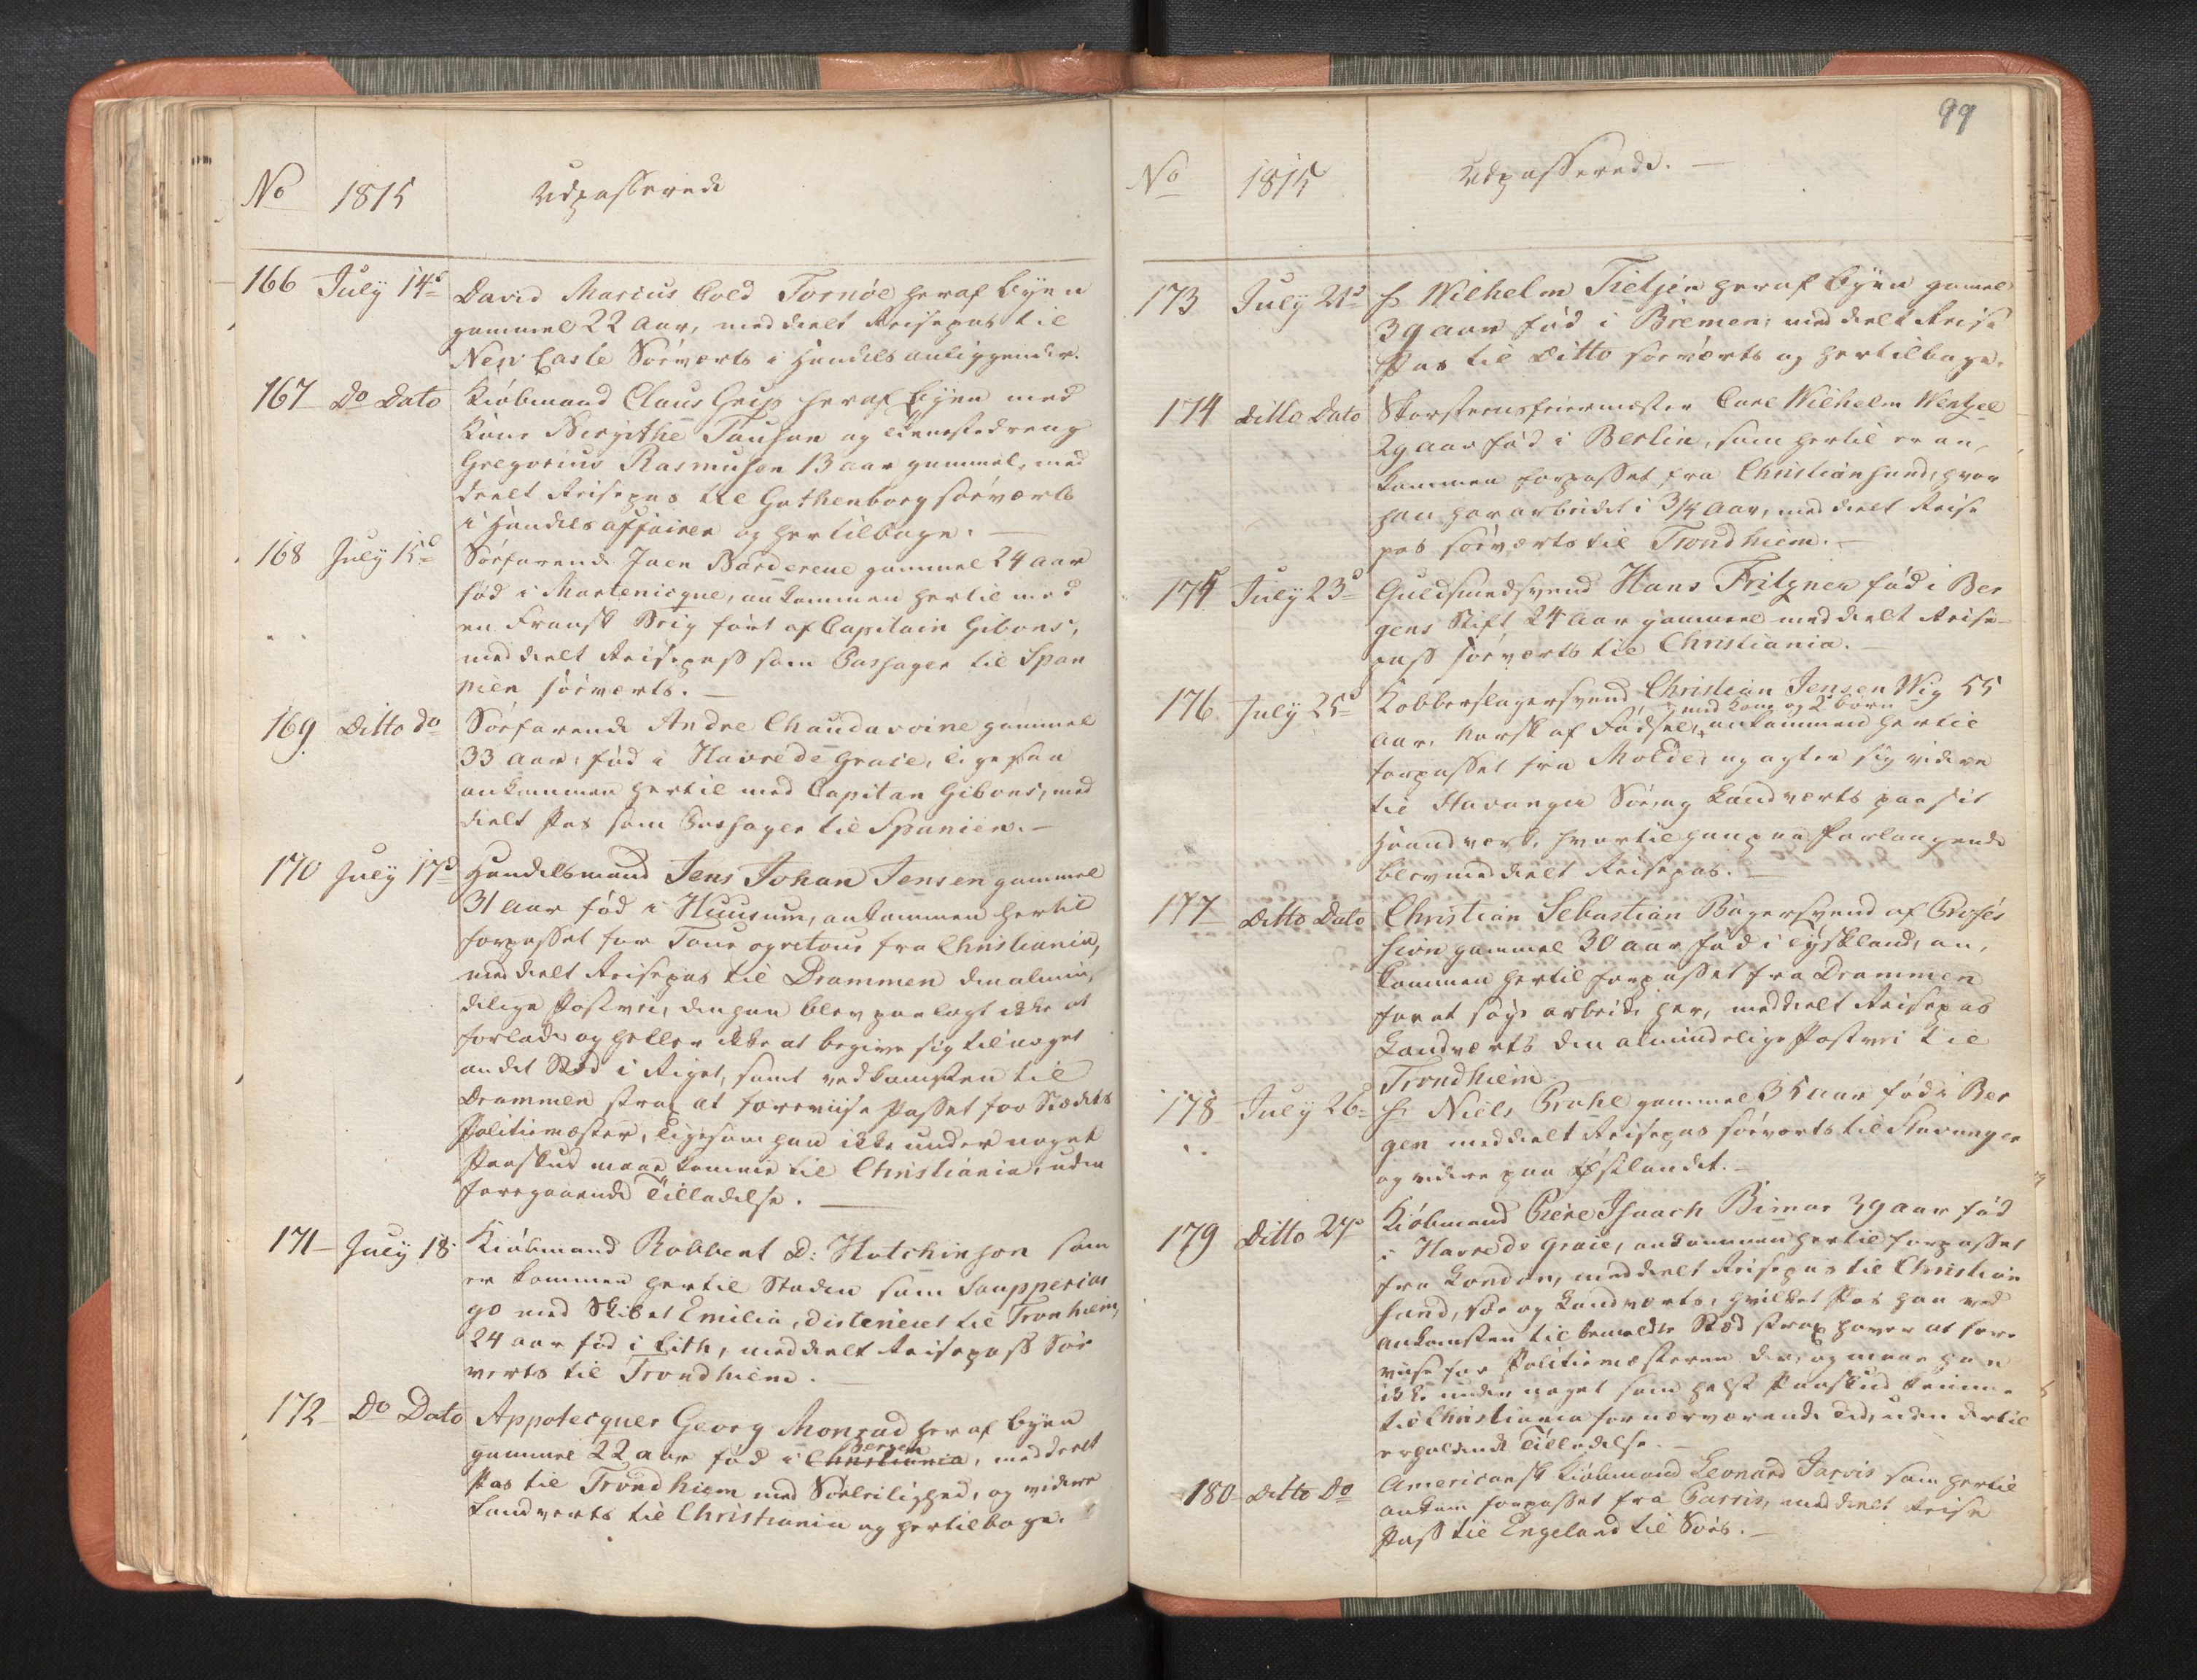 No 1815 Udpasserede
166 July 14d David Marius Cold Tornöe heraf Byen
gammel 22 Aar, meddeelt Reisepas til
New Castle Söeverts i Handels anliggender.
167 Do Dato Kiöbmand Claus Grip heraf Byen med
Kone Birgithe Tausan og Tienestedreng
Gregorius Rasmusen 13 aar gammel, med
deelt Reisepas til Gothenborg söeværts
i Handels affairer og hertilbage.
168 July 15d Söefarende Jaen Barderene gammel 24 Aar
fød i Martenicque, ankommen hertil med
en Fransk Brig ført af Capitain Gibons,
meddeelt Reisepass som Passager til Span
nien söeverts.
169 Ditto do Söefarende Andre Chaudavoine gammel
33 Aar, fød i Havre de Grace, ligesaa
ankommen hertil med Capitan Gibons, med
deelt Pas som Passager til Spanien.
170 July 17d Handelsmand Jens Johan Jensen gammel
31 Aar fød i Huusum, ankommen hertil
forpasset for Tour og retour fra Christiania,
meddeelt Reisepas til Drammen den almin,
delige Postvei, den han blev paalagt ikke at
forlade og heller ikke at begive sig til noget
andet Stæd i Riget, samt ved komsten til
Drammen strax at foreviise Passet for Stædets
Politiemester, ligesom han ikke under noget
Paaskud maae komme til Christiania, uden
foregaaende Tilladelse.
171 July 18 Kiöbmand Robbert D: Hutchinson som
er kommen hertil Staden som Soupperkar
go med Skibet Emilia, distineret til Tronhiem,
24 aar fød i Lith, meddeelt Reisepass Söe
verts til Trondhiem.
172 Do Dato Appotecquer Georg Monrad her af Byen
Bergen
gammel 22 aar fød i Christiania, meddeelt
Pas til Trondhiem med Söeleilighed, og videre
landverts til Christiania og hertilbage.
99
No 1815 Udpasserede.
173 July 21d Hr Wilhelm Tietjen heraf Byen gamel
39 aar fød i Bremen, meddeelt Reise
Pas til Ditto söeværts og hertilbage.
174 Ditto Dato Skorsteensfeiermester Carl Wilhelm Wentzel
29 aar fød i Berlin, som hertil er an,
kommen forpasset fra Christiansund, hvor
han har arbeidet i 3/4 Aar, meddeelt Reise
pas söeværts til Trondhiem.
175 July 23d Guldsmedsvend Hans Fritzner fød i Ber
gens Stift 24 Aar gammel meddeelt Reise-
pass söeværts til Christiania.
176 July 25d Kobberslagersvend, Christian Jensen Wig 55
med Kone og 2 børn
Aar, Norsk af Fødsel, ankommen hertil
forpasset fra Molde, og agter sig videre
til Stavanger Söe, og Landværts paa sit
Haandværk, hvortil han paa Forlangende
blev meddeelt Reisepas.
177 Ditto Dato Christian Sebastian Bagersvend af Profes
sion gammel 30 aar fød i Tyskland, an,
kommen hertil forpasset fra Drammen
for at søge arbeide her, meddeelt Reisepas
Landværts den almindelige Postvei til
Trondhiem.
178 July 26 Hr Niels Prahl gammel 35 aar fød i Ber
gen meddeelt Reisepas söeverts til Stavanger
og videre paa Østlandet.
179 Ditto 27d Kiöbmand Piere Isaach Bimar 39 aar fød
i Havre de Grace, ankommen hertil forpasset
fra London, meddeelt Reisepas til Christian
sand, söe og Landværts, hvilket Pas han ved
ankomsten til bemeldte Stæd strax haver at fore
viise for Politiemesteren der, og maae han
ikke under noget som helst Paaskud komme
til Christiania for nærværende Tid, uden dertil
erholdende Tilladelse.
180 Ditto Do Americansk Kiöbmand Leonard Jarvis som hertil
ankom forpasset fra Parris, meddeelt Reise
Pass til Engeland til Söes.